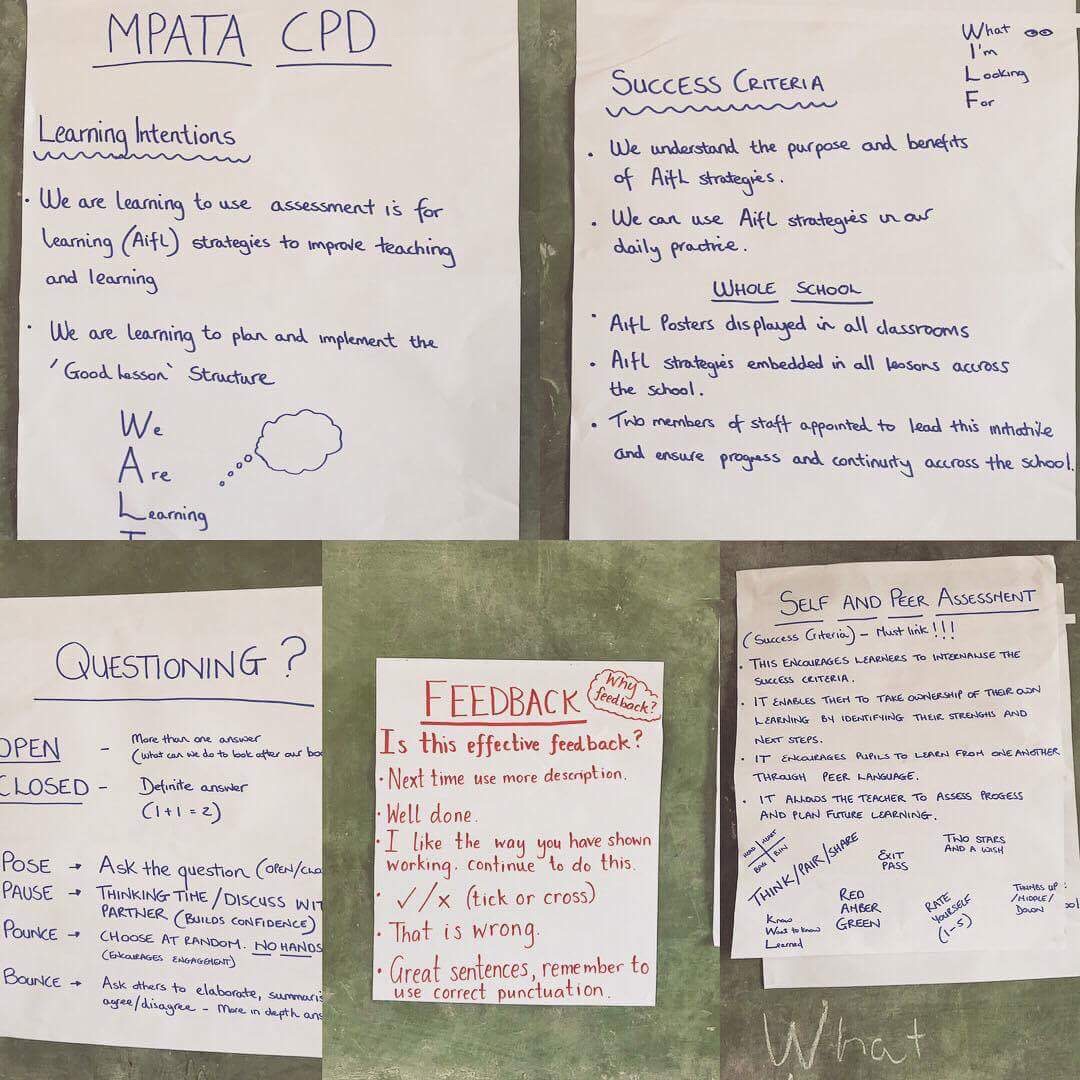 MPATA CPD
Learning Intentions
• We are learning to use assessment is for
learning (AifL) strategies to improve teaching
and learning
• We are learning to plan and implement the
'Good lesson' Structure
We
Are
Learning
What
I'm
Looking
For
SUCCESS CRITERIA
• We understand the purpose and benefits
of AifL strategies.
• We can use AifL strategies in our
daily practice.
WHOLE SCHOOL
• AifL Posters displayed in all classrooms
• AifL strategies embedded in all lessons accross
the school.
• Two members of staff appointed to lead this initiative
and ensure progress and continuity accross the school.
QUESTIONING?
OPEN - More than one answer
(what can we do to look after our
CLOSED - Definite answer
(1+1=2)
POSE → Ask the question (OPEN/
PAUSE → THINKING TIME/DISCUSS
PARTNER (BUILDS CONFIDENCE)
POUNCE → CHOOSE AT RANDOM. NO HANDS
(ENCOURAGES ENGAGEMENT)
BOUNCE → Ask others to elaborate,
agree/disagree - More in depth
Why
feedback?
FEEDBACK
Is this effective feedback?
• Next time use more description.
• Well done.
• I like the way you have shown
working. continue to do this.
• ✓/x (tick or cross)
• That is wrong.
• Great sentences, remember to
use correct punctuation.
SELF AND PEER ASSESSMENT
(Success Criteria) - Must link!!!
• THIS ENCOURAGES LEARNERS TO INTERNALISE THE
SUCCESS CRITERIA.
• IT ENABLES THEM TO TAKE OWNERSHIP OF THEIR OWN
LEARNING BY IDENTIFYING THEIR STRENGHS AND
NEXT STEPS.
• IT ENCOURAGES PUPILS TO LEARN FROM ONE ANOTHER
THROUGH PEER LANGUAGE.
• IT ALLOWS THE TEACHER TO ASSESS PROGESS
AND PLAN FUTURE LEARNING.
BAG
BIN
THINK/PAIR/SHARE
EXIT
PASS
TWO STARS
AND A WISH
Know
Want to know
Learned
RED
AMBER
GREEN
RATE
YOURSELF
(1-5)
THUMBS UP
/MIDDLE/
DOWN
What